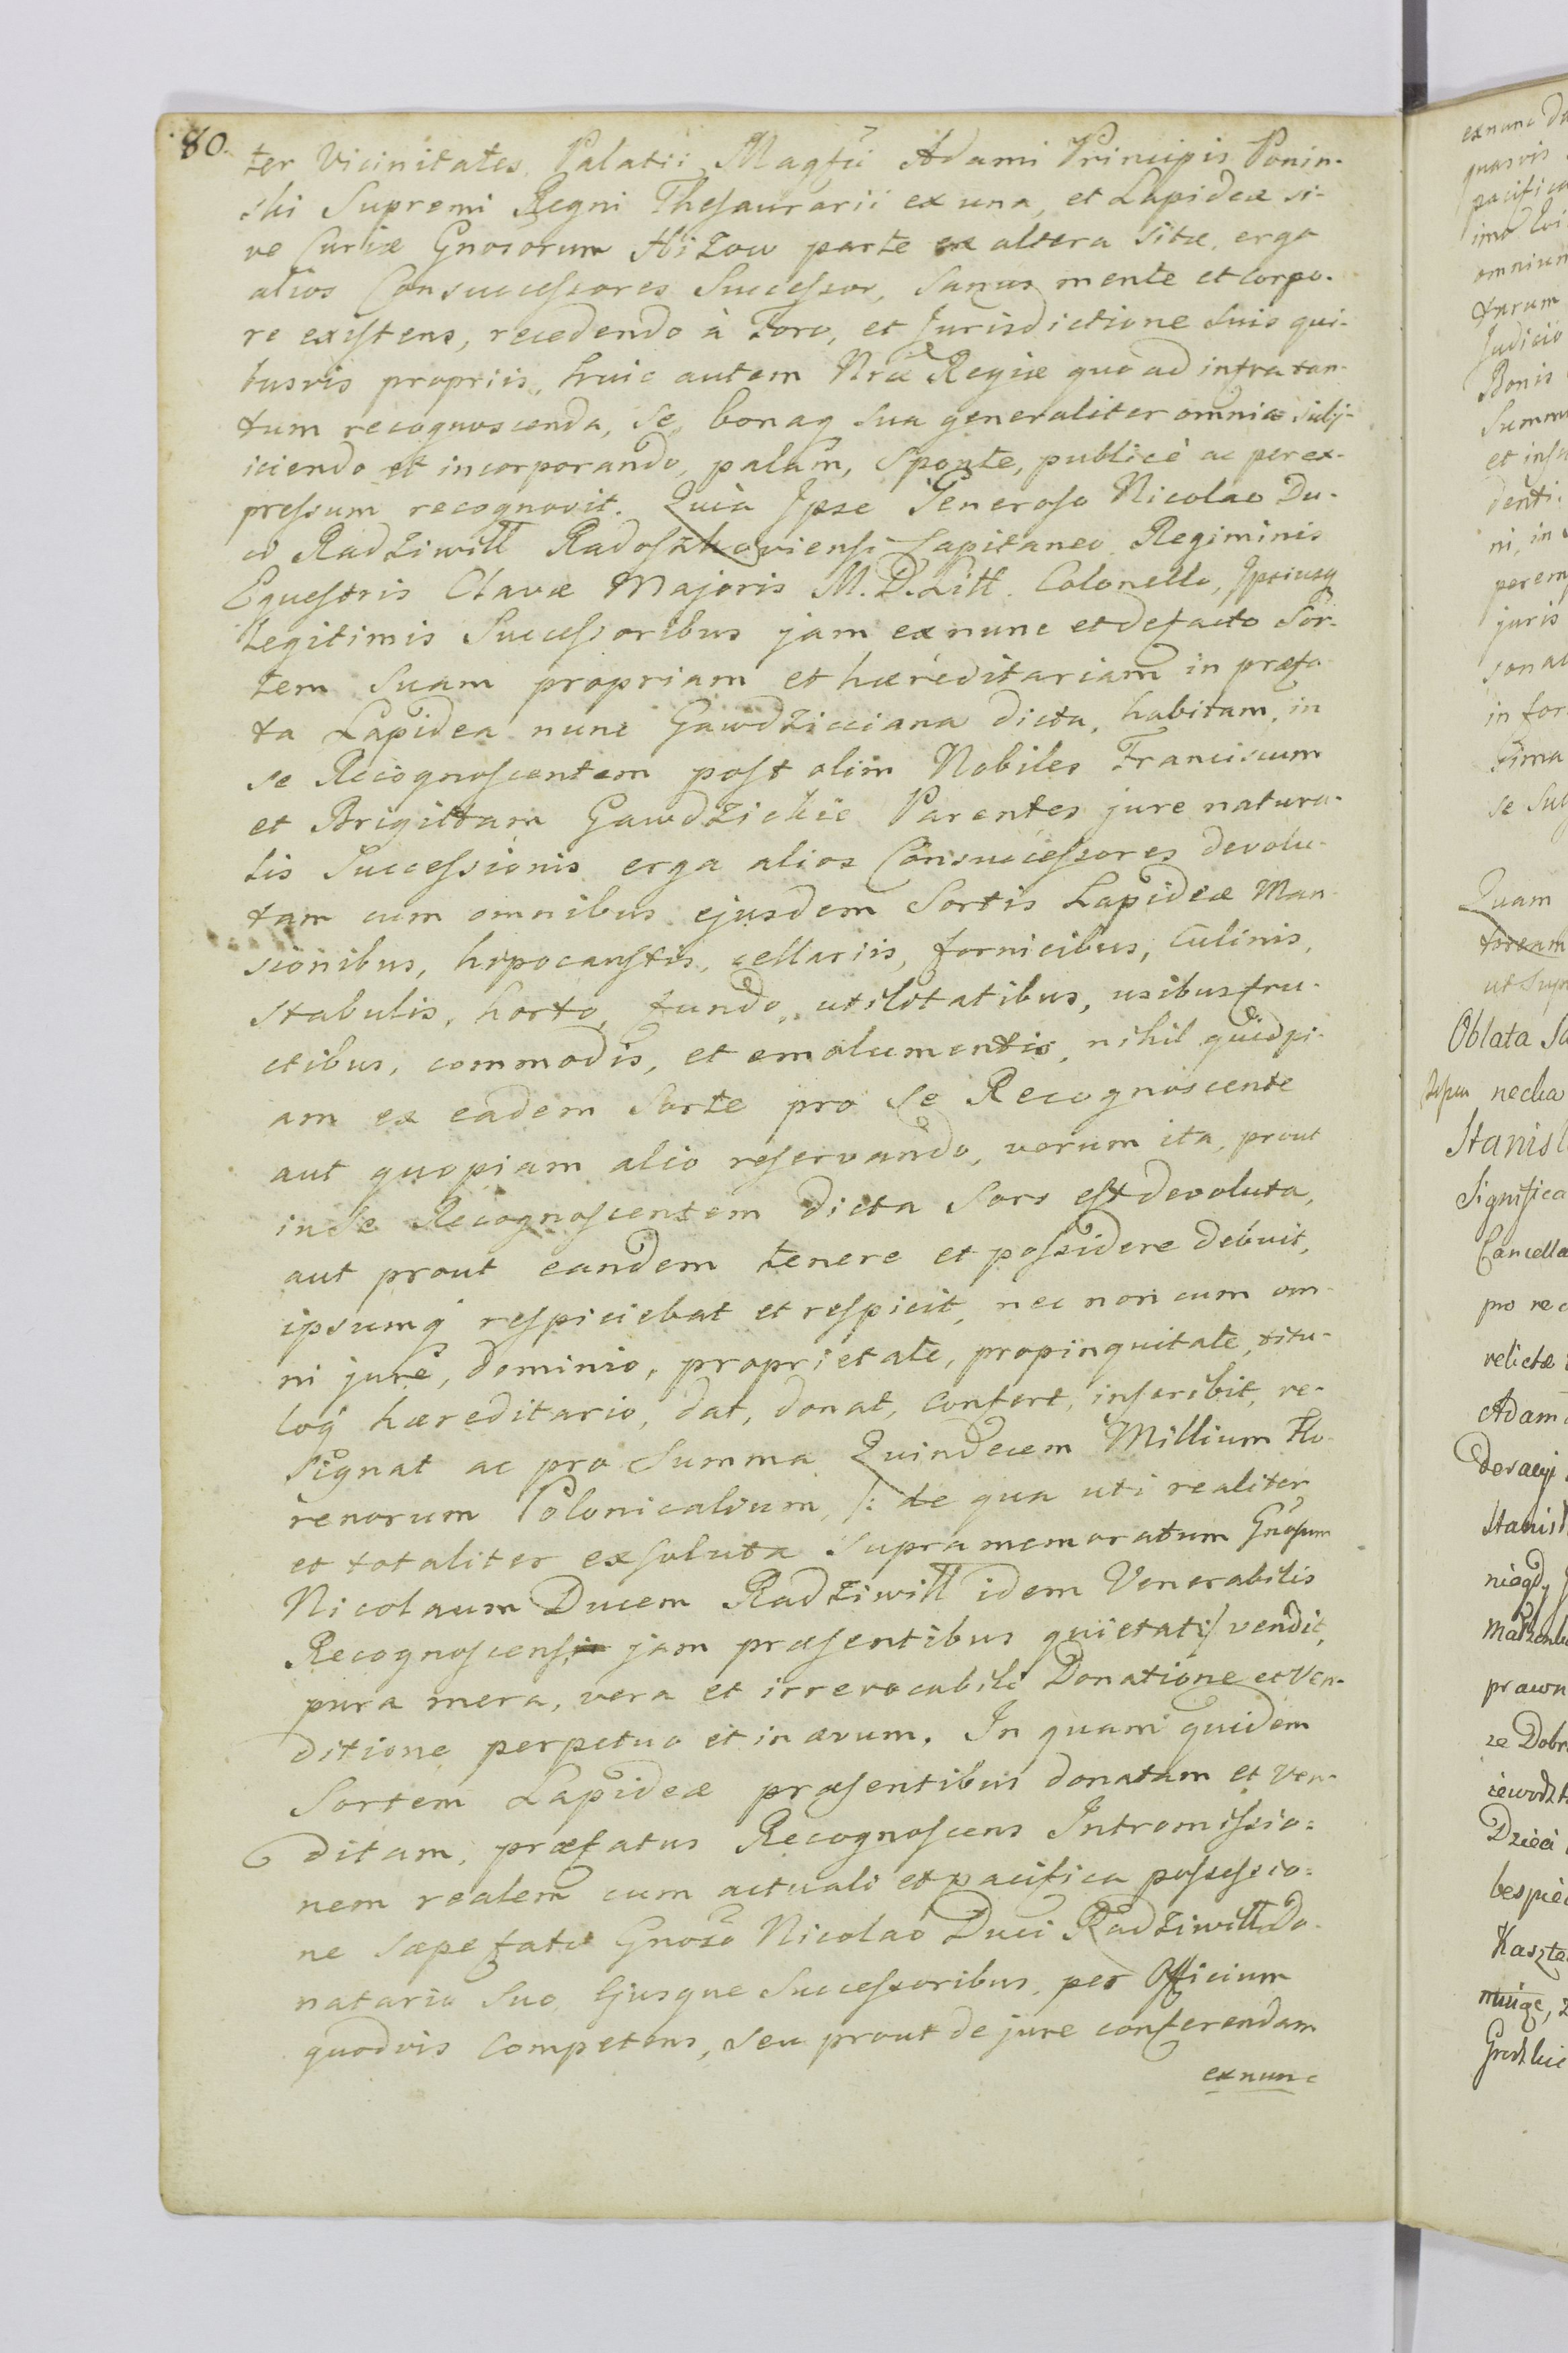 80.
ter Vicinitates Palatii Magfci Adami Principis Ponin-
ski Supremi Regni Thesaurarii ex una, et Lapideæ si-
ve Curiæ Gnosorum Hizow parte ex altera sitæ, erga
alios Consuccessores Successor, Sanus mente et corpo-
re existens, recedendo à Foro, et Jurisdictione suis qui-
busvis propriis, huic autem Nræ Regiæ quo ad infra tan-
tum recognoscenda, se, bonaq sua generaliter omnia subj-
iciendo et incorporando, palam, sponte, publicè ac per ex-
pressum recognovit. Quia Ipse Generoso Nicolao Du-
ci Radziwiłł Radoszkoviensi Capitaneo Regiminis
Equestris Clavæ Majoris M. D. Litt. Colonello, Ipsiusq
Legitimis Successoribus jam ex nunc et de facto Sor-
tem Suam propriam et hæreditariam in præfa-
ta Lapidea nunc Gawdzicciana dicta, habitam, in
se Recognoscentem post olim Nobiles Franciscum
et Brigittam Gawdzickie Parentes jure natura-
lis Successionis erga alios Consuccessores devolu-
tam cum omnibus ejusdem Sortis Lapideæ Man-
sionibus, hypocaustis, cellariis, fornicibus, Culinis,
stabulis, horto, fundo, utilitatibus, usibus fru-
ctibus, commodis, et emolumentis, nihil quidpi-
am ex eadem Sorte pro se Recognoscente
aut quopiam alio reservando, verum ita, prout
in Se Recognoscentem dicta Sors est devoluta,
aut prout eandem tenere et possidere debuit,
ipsumq respiciebat et respicit, nec non cum om-
ni jure, dominio, proprietate, propinquitate, titu-
loq hæreditario, dat, donat, confert, inscribit, re-
signat ac pro Summa Quindecem Millium Flo-
renorum Polonicalium, /: de qua uti realiter
et totaliter exsoluta supra memoratum Gnosum
Nicolaum Ducem Radziwiłł idem Venerabilis
Recognoscens jam præsentibus quietat :/ vendit,
pura mera, vera et irrevocabili Donatione et Ven-
ditione perpetuo et in ævum. In quam quidem
Sortem Lapideæ præsentibus donatam et ven-
ditam, præfatus Recognoscens Intromissio=
nem realem cum actuali et pacifica possessio=
ne sæpefato Gnoso Nicolao Duci Radziwiłł Do-
natario Suo, Ejusque Successoribus, per Officium
quodvis Competens, seu prout de jure conferendam
ex nunc
ex nunc
quasvis
pacifica
omnium
Judicio
Bonis
Summ
et insu
denti
ni, in
perem
juris
sona
in for
Quam
ut Supr
Oblata
necha
Stanisl
Significa
Cancella
pro rec
relictæ
Adam
Stanisl
niegdy
prawn
ze Dobr
Dzieci
bespiec
Kaszte
Grodzkie